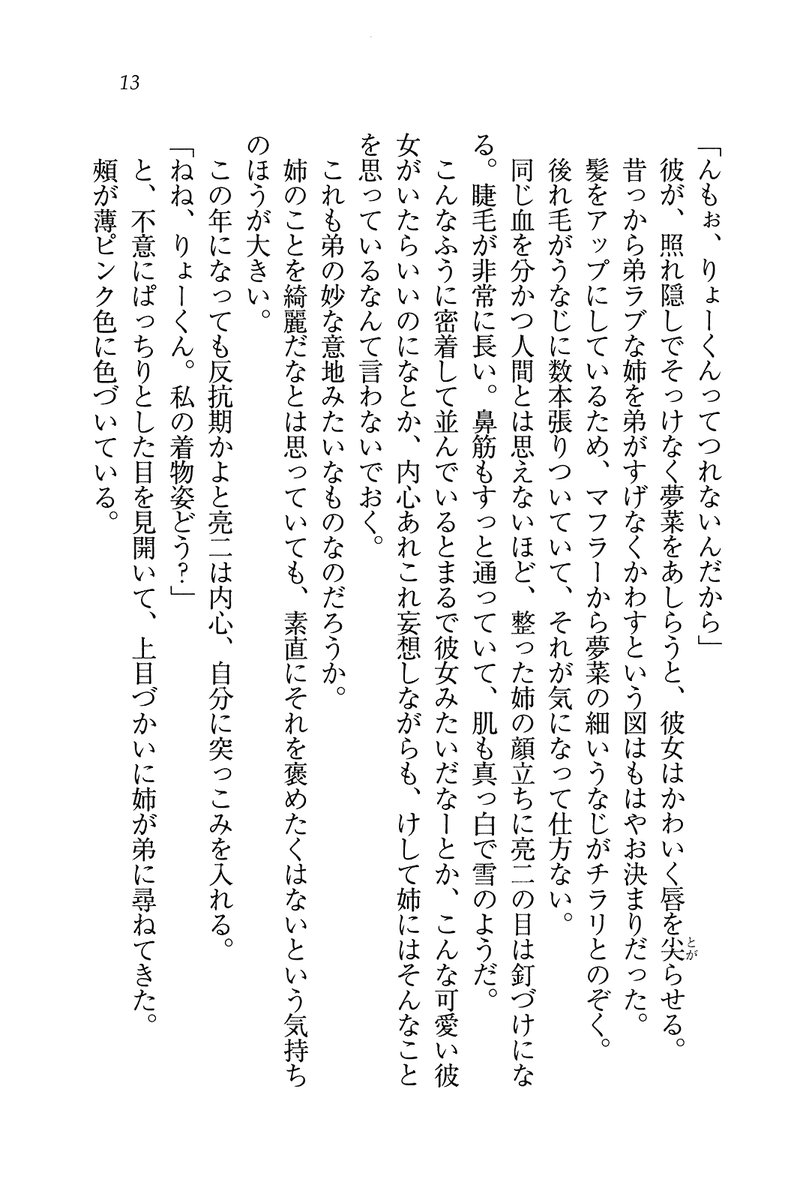 13
「んもぉ、りょーくんってつれないんだから」
彼が、照れ隠しでそっけなく夢菜をあしらうと、彼女はかわいく唇を尖らせる。
昔っから弟ラブな姉を弟がすげなくかわすという図はもはやお決まりだった。
髪をアップにしているため、マフラーから夢菜の細いうなじがチラリとのぞく。
後れ毛がうなじに数本張りついていて、それが気になって仕方ない。
同じ血を分かつ人間とは思えないほど、整った姉の顔立ちに亮二の目は釘づけにな
る。睫毛が非常に長い。鼻筋もすっと通っていて、肌も真っ白で雪のようだ。
こんなふうに密着して並んでいるとまるで彼女みたいだなーとか、こんな可愛い彼
女がいたらいいのになとか、内心あれこれ妄想しながらも、けして姉にはそんなこと
を思っているなんて言わないでおく。
これも弟の妙な意地みたいなものなのだろうか。
姉のことを綺麗だなとは思っていても、素直にそれを褒めたくはないという気持ち
のほうが大きい。
この年になっても反抗期かよと亮二は内心、自分に突っこみを入れる。
「ねね、りょーくん。私の着物姿どう？」
と、不意にぱっちりとした目を見開いて、上目づかいに姉が弟に尋ねてきた。
頬が薄ピンク色に色づいている。